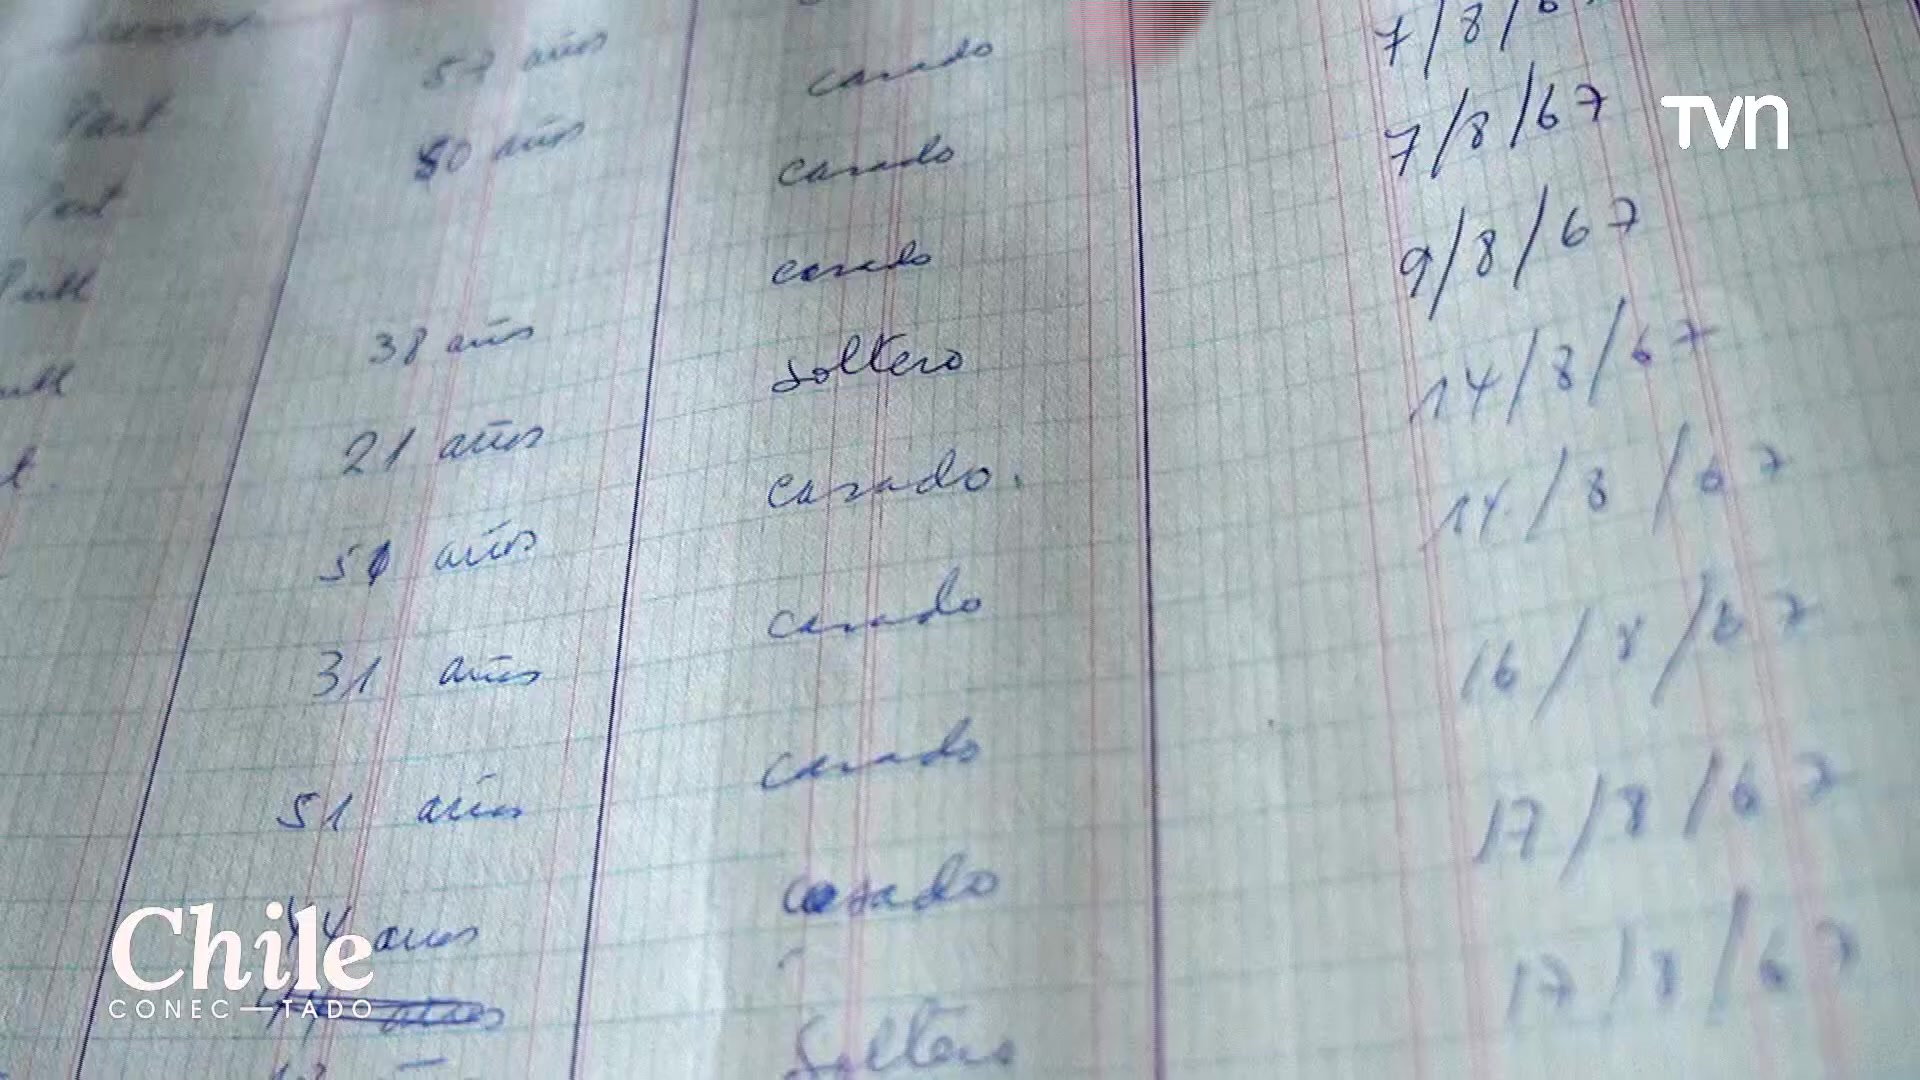 57 años casado 7/8/6
Part 50 años casado 7/8/67
casado 9/8/67
38 años soltero 14/8/67
21 años casado. 14/8/67
51 años casado 16/8/67
31 años casado 17/8/67
51 años casado 17/8/67
44 años soltero
años
TVN
Chile
CONEC—TADO